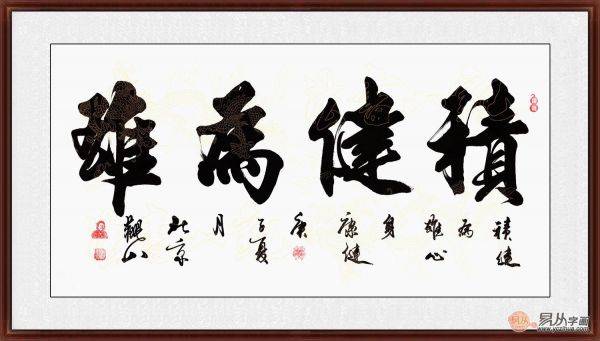 積健為雄
積健
為
雄心
身
康健
庚
子夏
月
北京
觀山
易从字画